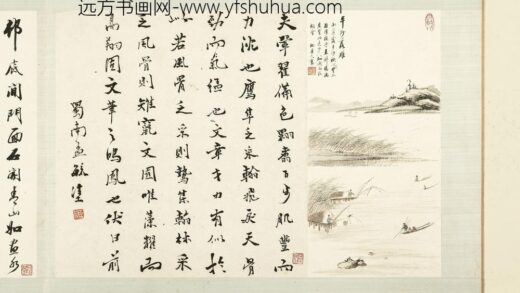 远方书画网- www.yfshuhua.com
平沙落雁
夫翬翟備色翾翥百步肌豐而
力沈也鷹隼乏采翰飛戾天骨
勁而氣猛也文章才力有似於
此若風骨乏采則鷙集翰林采
乏風骨則雉竄文囿唯藻耀而
高翔固文筆之鳴鳳也伏日前
蜀南孟毓
門面石開青山如畫